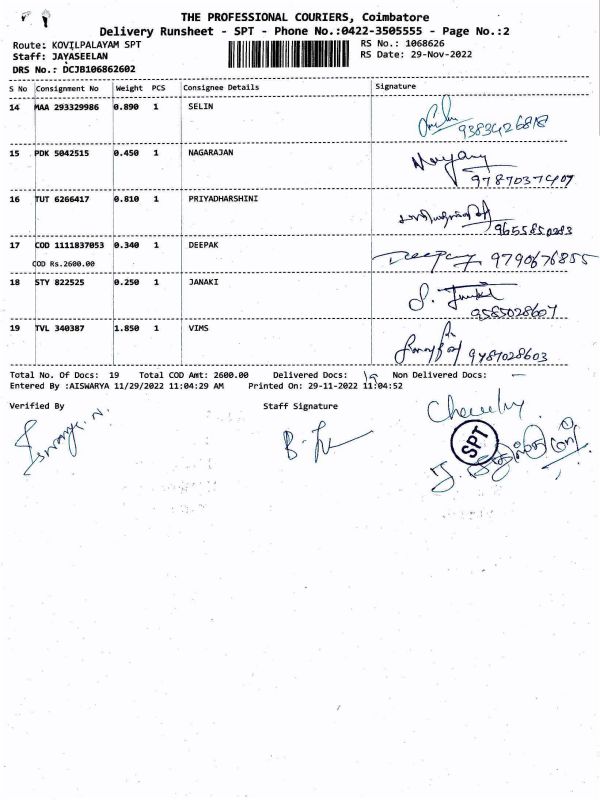 THE PROFESSIONAL COURIERS, Coimbatore
Delivery Runsheet - SPT - Phone No.:0422-3505555 - Page No.:2
Route: KOVILPALAYAM SPT RS No.: 1068626
Staff: JAYASEELAN RS Date: 29-Nov-2022
DRS No.: DCJB106862602
S No Consignment No Weight PCS Consignee Details Signature
14 MAA 293329986 0.890 1 SELIN
9383426818
15 PDK 5042515 0.450 1 NAGARAJAN
9787037407
16 TUT 6266417 0.810 1 PRIYADHARSHINI
9655850283
17 COD 1111837053 0.340 1 DEEPAK Deepak 9790676855
COD Rs.2600.00
18 STY 822525 0.250 1 JANAKI
9585028607
19 TVL 340387 1.850 1 VIMS
9487028603
Total No. Of Docs: 19 Total COD Amt: 2600.00 Delivered Docs: 19 Non Delivered Docs: -
Entered By :AISWARYA 11/29/2022 11:04:29 AM Printed On: 29-11-2022 11:04:52
Verified By Staff Signature
SPT